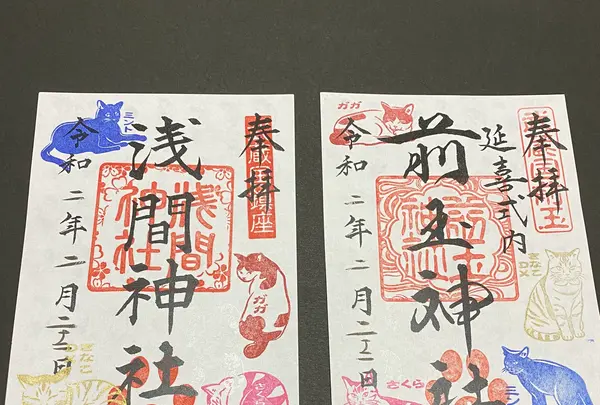 奉拝
浅間神社
浅間神社
令和二年二月二十二日
ミント
ガガ
きなこ
さくら
奉拝
延喜式内
前玉神社
前玉神社
令和二年二月二十二日
ガガ
きなこ
DX
さくら
ミン